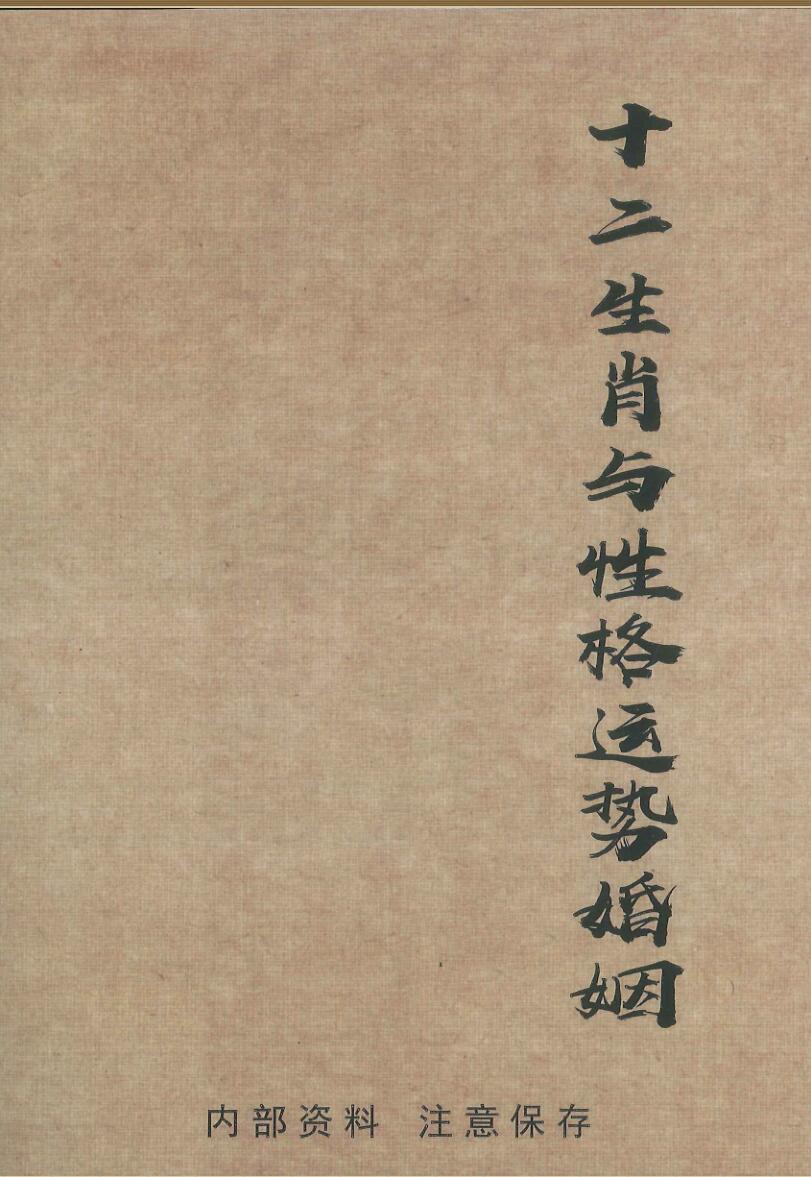 十二生肖与性格运势婚姻
内部资料 注意保存